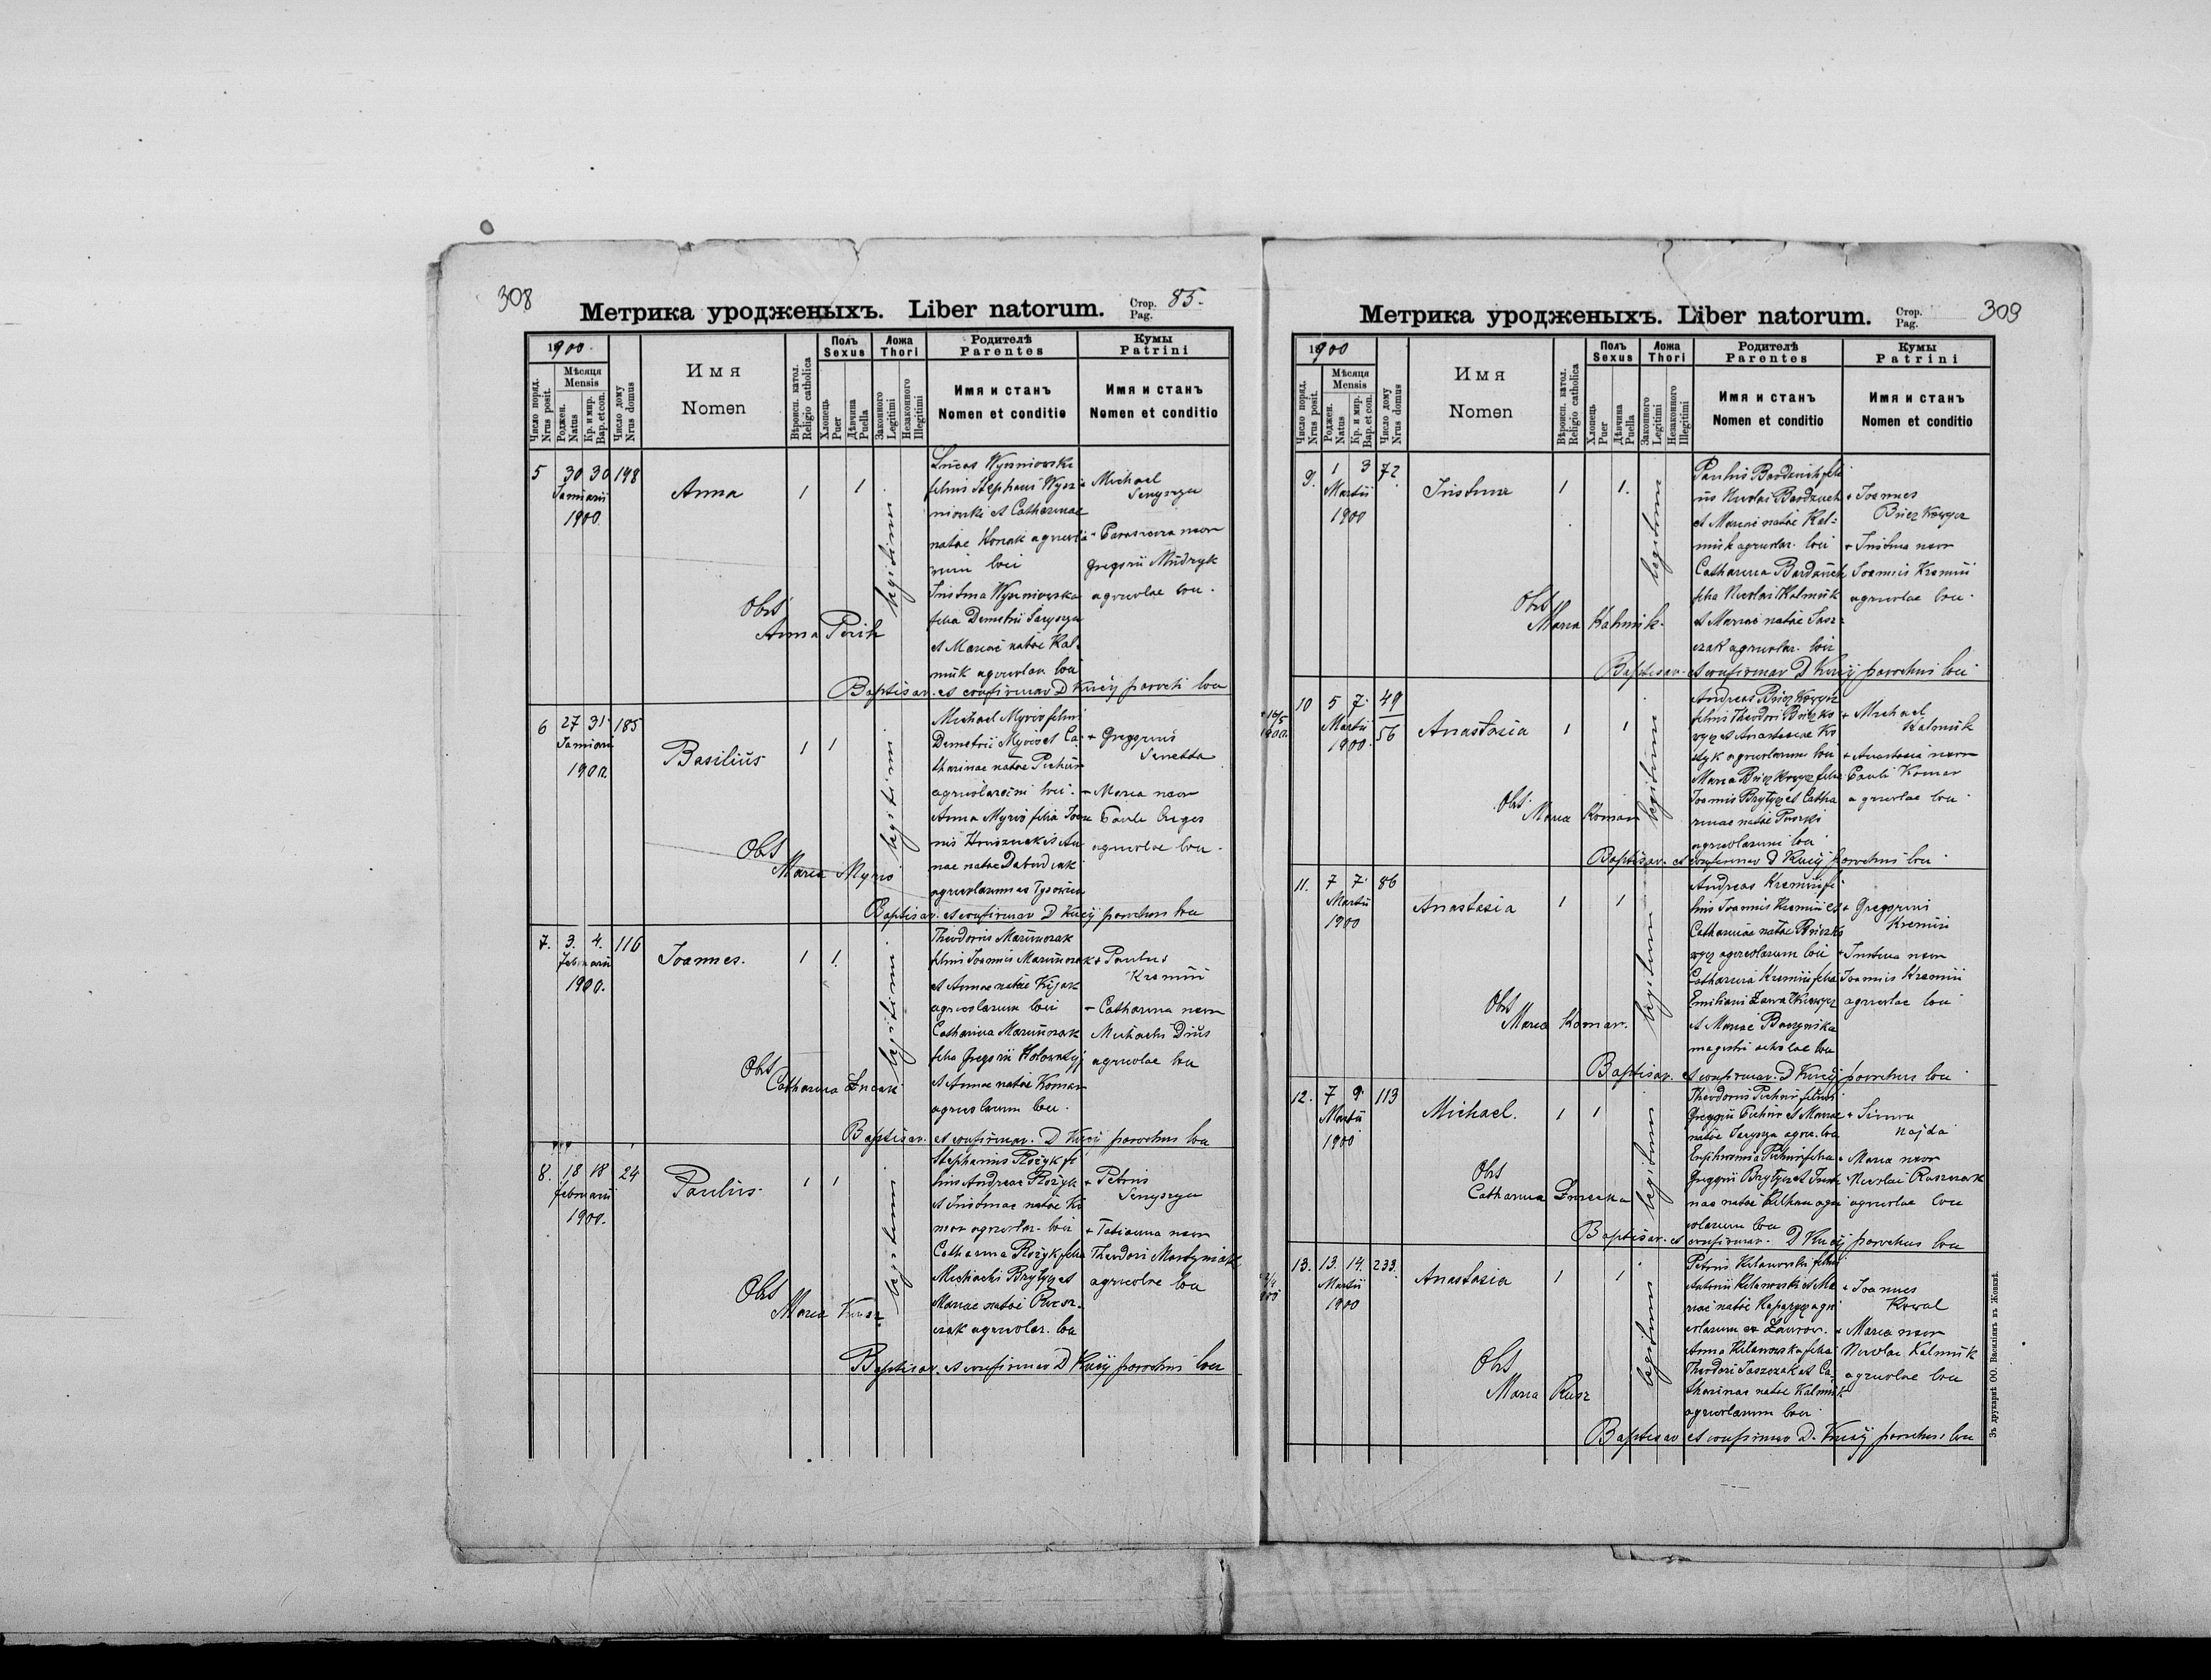 308
Метрика уродженыхъ. Liber natorum. Стор. Pag. 85.
1900
Число поряд. Nrus posit.
Мѣсяця Mensis
Роджен. Natus
Кр. и мѵр. Bap. et con.
Число дому Nrus domus
Имя Nomen
Вѣроисп. катол. Religio catholica
Полъ Sexus
Хлопець Puer
Дѣвчина Puella
Ложа Thori
Законного Legitimi
Незаконного Illegitimi
Родителѣ Parentes
Имя и станъ Nomen et conditio
Кумы Patrini
Имя и станъ Nomen et conditio
5 30 30 148
Januarii
1900.
Anna
1 1
legitimi
Lucas Wyszniowski
filius Stephani Wysz
niowski et Catharinae
natae Konak agricola
rum loci
Justina Wyszniowska
filia Demetrii Senyszyn
et Mariae natae Kal
muk agricolar. loci
+ Michael
Senyszyn
+ Parascewa uxor
Gregorii Mudryk
agricolae loci.
Obst
Anna Perih
Baptisav. et confirmav D Kuciy parochus loci
6 27 31 185
Januarii
1900
Basilius
1 1
legitimi
Michael Myros filius
Demetrii Myros et Ca
tharinae natae Pichur
agricolarum loci.
Anna Myros filia Joan
nis Hruszczak et An
nae natae
agricolarum ex Tysowica
+ Gregorius
Senetta
+ Maria uxor
Pauli
agricolae loci.
Obst
Maria Myros
Baptisav. et confirmav D Kuciy parochus loci
7. 3. 4. 116
Februarii
1900.
Joannes.
1 1.
legitimi
Theodorus Marunczak
filius Joannis Marunczak
et Annae natae Kijak
agricolarum loci
Catharina Marunczak
filia Gregorii Holowatyj
et Annae natae Komar
agricolarum loci.
+ Paulus
Kremin
+ Catharina uxor
Michaelis Drus
agricolae loci
Obst
Catharina
Baptisav. et confirmav. D Kuciy parochus loci
8. 18 18 24
februarii
1900.
Paulus.
1 1
legitimi
Stephanus Rozyk fi
lius Andreae Rozyk
et Justinae natae Ko
mar agricolar. loci
Catharina Rozyk filia
Michaelis Brytycz et
Mariae natae
agricolar. loci
+ Petrus
Senyszyn
+ Tatianna uxor
Theodori Martyniak
agricolae loci
Obst
Maria Kusz
Baptisav. et confirmav D Kuciy parochus loci
Метрика уродженыхъ. Liber natorum. Стор. Pag. 309
1900
Число поряд. Nrus posit.
Мѣсяця Mensis
Роджен. Natus
Кр. и мѵр. Bap. et con.
Число дому Nrus domus
Имя Nomen
Вѣроисп. катол. Religio catholica
Полъ Sexus
Хлопець Puer
Дѣвчина Puella
Ложа Thori
Законного Legitimi
Незаконного Illegitimi
Родителѣ Parentes
Имя и станъ Nomen et conditio
Кумы Patrini
Имя и станъ Nomen et conditio
9. 1 3 72
Martii
1900
Justina
1 1.
legitimi
Paulus Bardzuch fili
us Nicolai Bardzuch
et Mariae natae Kal
muk agricolar. loci
Catharina Bardzuch
filia Nicolai Kalmuk
et Mariae natae Jasz
czak agricolar. loci
+ Joannes
Briczkowycz
+ Justina uxor
Joannis Kremin
agricolae loci.
Obst
Maria Kalmuk.
Baptisav. et confirmav D Kuciy parochus loci
10 5 7. 49
56
Martii
1900.
Anastasia
1 1
legitimi
Andreas Briczkowycz
filius Theodori Briczko
wycz et Anastasiae Ko
styk agricolarum loci
Maria Briczkowycz filia
Joannis Brytycz et Catha
rinae natae
agricolarum loci
+ Michael
Kalmuk
+ Anastasia uxor
Pauli Komar
agricolae loci
Obst
Maria Komar
Baptisav. et confirmav D Kuciy parochus loci
11. 7 7. 86
Martii
1900
Anastasia
1 1
legitimi
Andreas Kremin fi
lius Joannis Kremin et
Catharinae natae Briczko
wycz agricolarum loci
Catharina Kremin filia
Emiliani
et Mariae Baczynska
magistri scholae loci
+ Gregorius
Kremin
+ Justina uxor
Joannis Kremin
agricolae loci
Obst
Maria Komar.
Baptisav. et confirmav. D Kuciy parochus loci
12. 7 9. 113
Martii
1900
Michael.
1 1
legitimi
Theodorus Pichur filius
Gregorii Pichur et Mariae
natae Senyszyn agric. loci
Euphrosina Pichur filia
Gregorii Brytycz et Justi
nae natae agri
colarum loci
+ Simon
Najda
+ Maria uxor
Nicolai
agricolae loci
Obst
Catharina
Baptisav. et confirmav. D Kuciy parochus loci
13. 13. 14. 233.
Martii
1900
Anastasia
1 1
legitimi
Petrus Kilanowski filius
Antonii Kilanowski et Ma
riae natae agri
colarum ex Lawrow.
Anna Kilanowska filia
Theodori Jaszczak et Ca
tharinae natae Kalmuk
agricolarum loci
+ Joannes
Kowal
+ Maria uxor
Nicolai Kalmuk
agricolae loci
Obst
Maria Kusz
Baptisav et confirmav D. Kuciy parochus loci
Зъ друкарнѣ ОО. Василіянъ въ Жовквѣ.